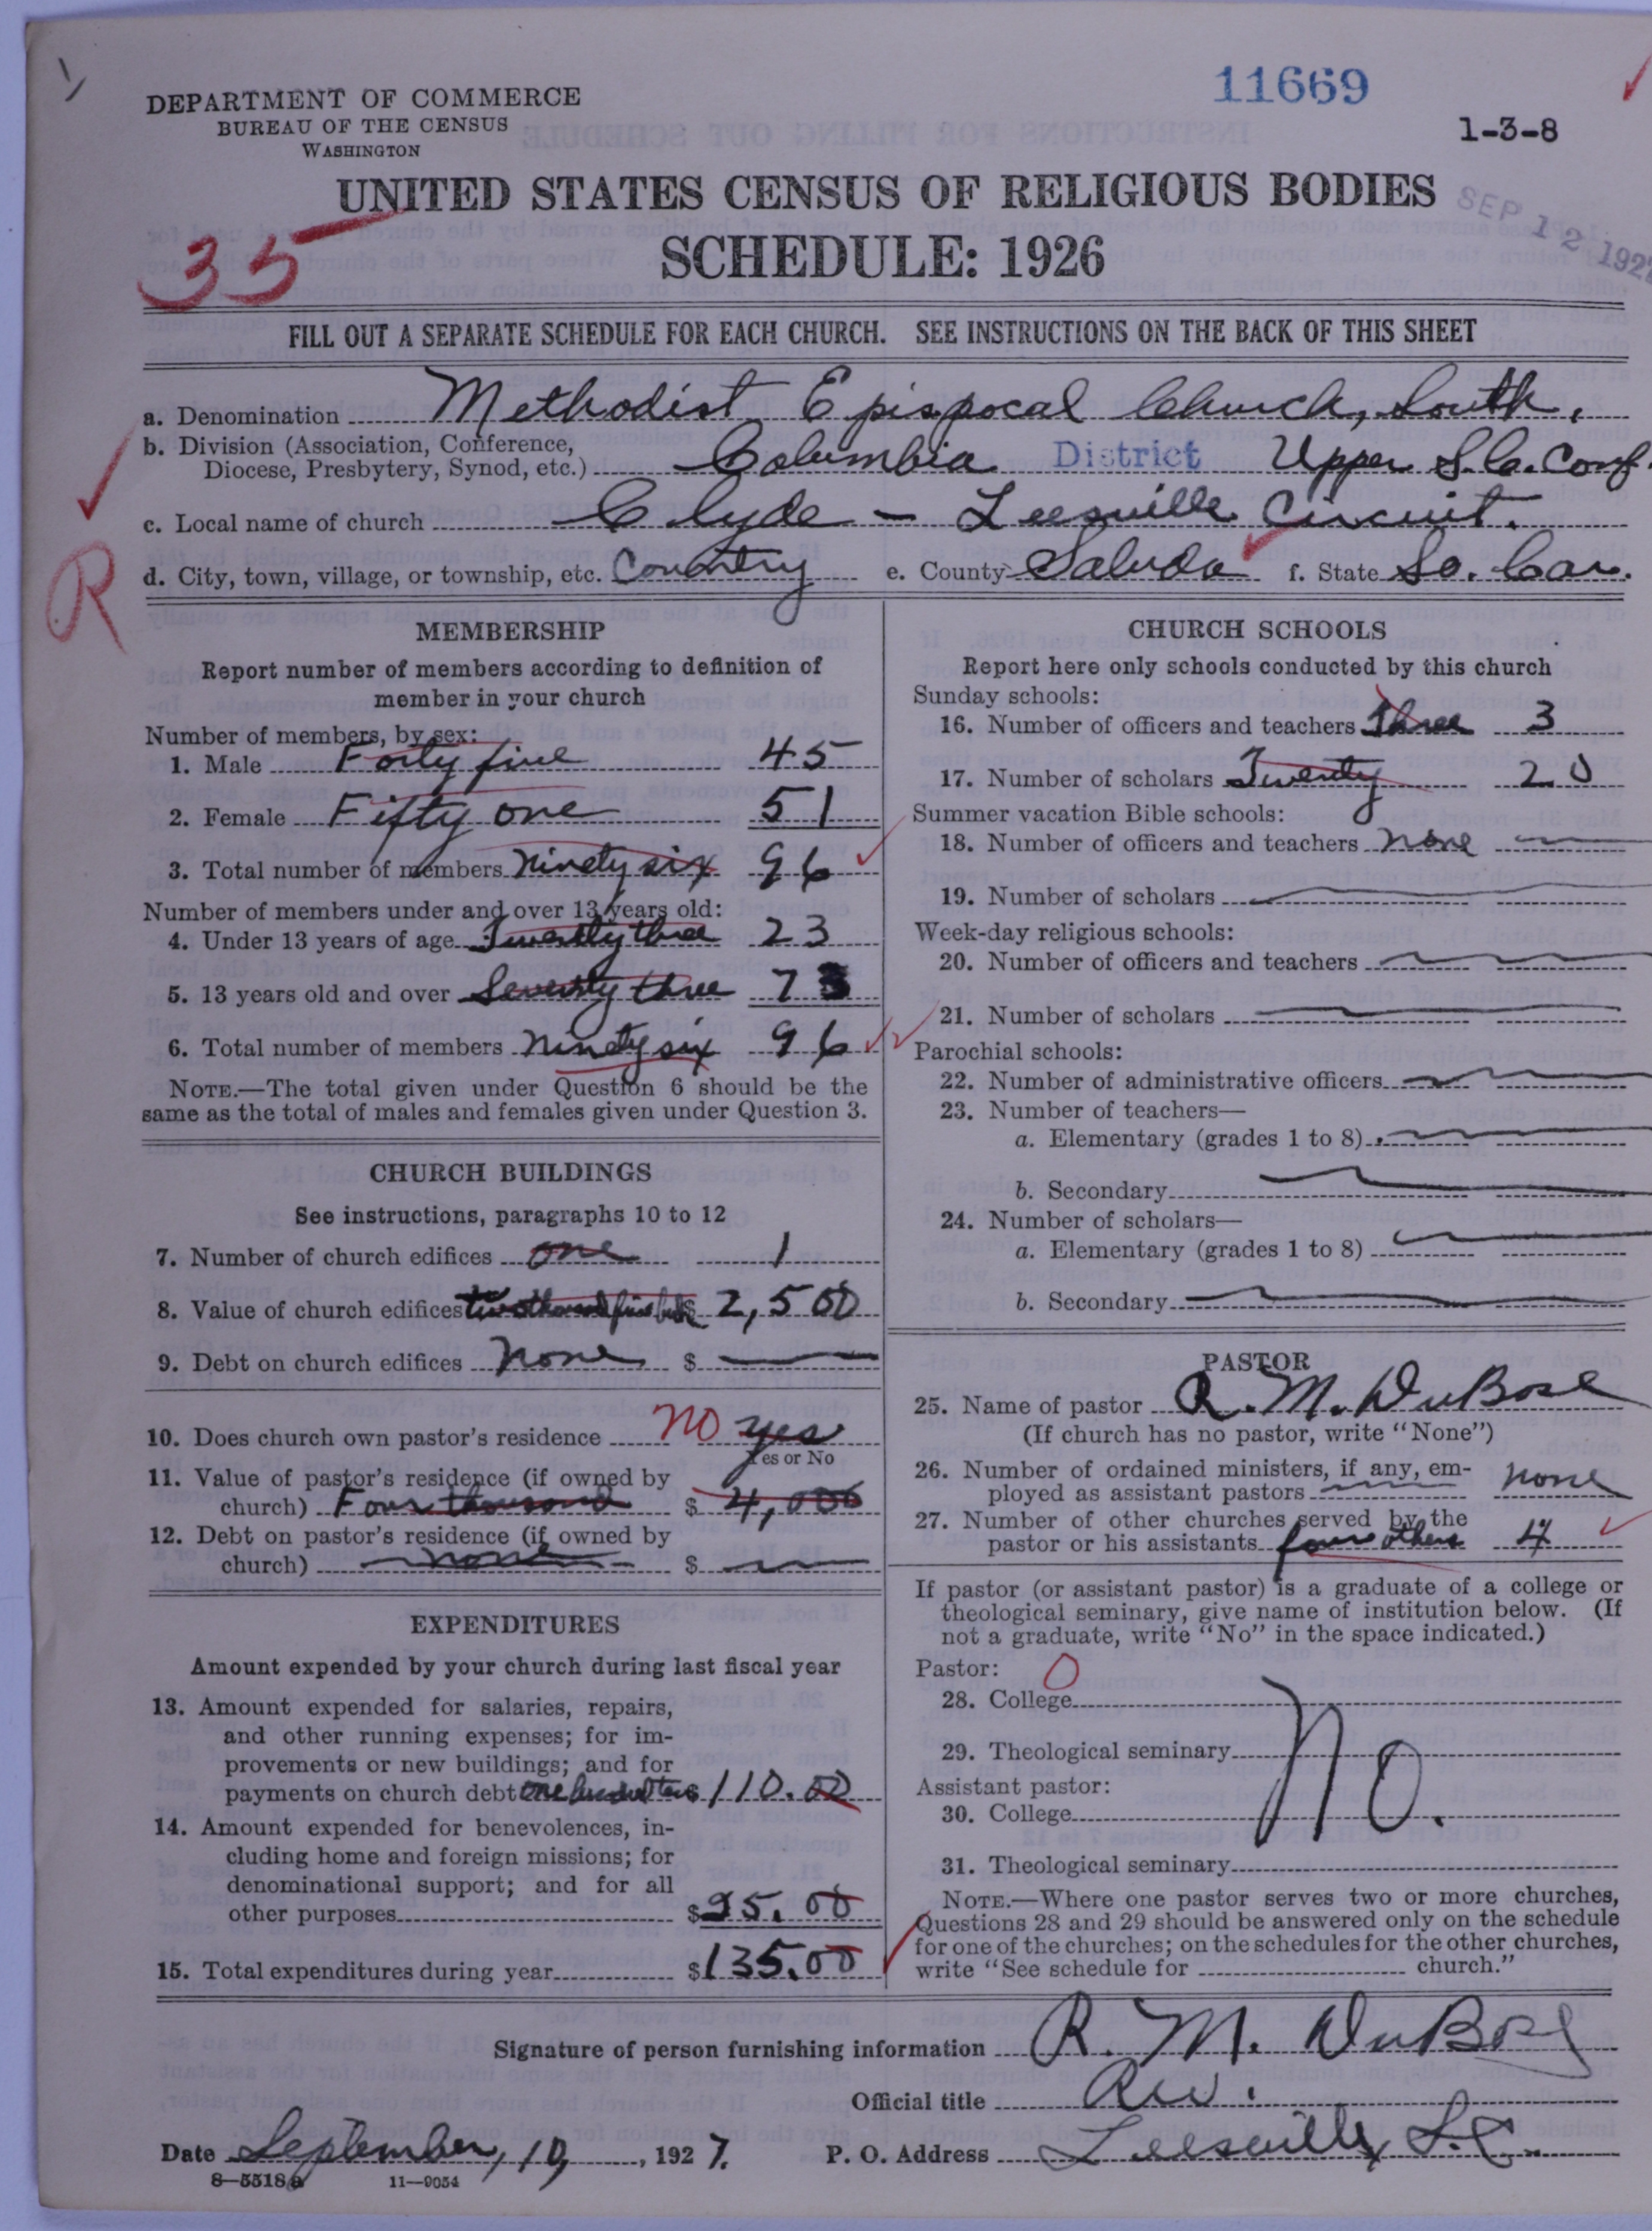 11669
DEPARTMENT OF COMMERCE
BUREAU OF THE CENSUS
WASHINGTON
1-3-8
UNITED STATES CENSUS OF RELIGIOUS BODIES
SEP 12 192
35
SCHEDULE: 1926
FILL OUT A SEPARATE SCHEDULE FOR EACH CHURCH. SEE INSTRUCTIONS ON THE BACK OF THIS SHEET
a. Denomination Methodist Epispocal Church, South,
b. Division (Association, Conference,
Diocese, Presbytery, Synod, etc.) Columbia District Upper S.C. Conf.
c. Local name of church Clyde - Leesville Circuit.
d. City, town, village, or township, etc. Country e. County Saluda f. State So. Car.
R
MEMBERSHIP
Report number of members according to definition of
member in your church
Number of members, by sex:
1. Male Forty five 45
2. Female Fifty one 51
3. Total number of members Ninety six 96
Number of members under and over 13 years old:
4. Under 13 years of age Twenty three 23
5. 13 years old and over Seventy three 73
6. Total number of members Ninety six 96
NOTE.—The total given under Question 6 should be the
same as the total of males and females given under Question 3.
CHURCH BUILDINGS
See instructions, paragraphs 10 to 12
7. Number of church edifices one 1
8. Value of church edifices two thousand five hund $ 2,500
9. Debt on church edifices None $
10. Does church own pastor's residence No yes
Yes or No
11. Value of pastor's residence (if owned by
church) Four thousand $ 4,000
12. Debt on pastor's residence (if owned by
church) none $
EXPENDITURES
Amount expended by your church during last fiscal year
13. Amount expended for salaries, repairs,
and other running expenses; for im-
provements or new buildings; and for
payments on church debt one hundred ten $ 110.00
14. Amount expended for benevolences, in-
cluding home and foreign missions; for
denominational support; and for all
other purposes $ 25.00
15. Total expenditures during year $ 135.00
CHURCH SCHOOLS
Report here only schools conducted by this church
Sunday schools:
16. Number of officers and teachers three 3
17. Number of scholars Twenty 20
Summer vacation Bible schools:
18. Number of officers and teachers none
19. Number of scholars
Week-day religious schools:
20. Number of officers and teachers
21. Number of scholars
Parochial schools:
22. Number of administrative officers
23. Number of teachers—
a. Elementary (grades 1 to 8)
b. Secondary
24. Number of scholars—
a. Elementary (grades 1 to 8)
b. Secondary
PASTOR
25. Name of pastor R. M. DuBose
(If church has no pastor, write "None")
26. Number of ordained ministers, if any, em-
ployed as assistant pastors none
27. Number of other churches served by the
pastor or his assistants four others 4
If pastor (or assistant pastor) is a graduate of a college or
theological seminary, give name of institution below. (If
not a graduate, write "No" in the space indicated.)
Pastor: 0
28. College
29. Theological seminary No.
Assistant pastor:
30. College
31. Theological seminary
NOTE.—Where one pastor serves two or more churches,
Questions 28 and 29 should be answered only on the schedule
for one of the churches; on the schedules for the other churches,
write "See schedule for church."
Signature of person furnishing information R. M. DuBose
Official title Rev.
Date September, 10, 1927. P. O. Address Leesville, S.C.
8-5518a 11-9054